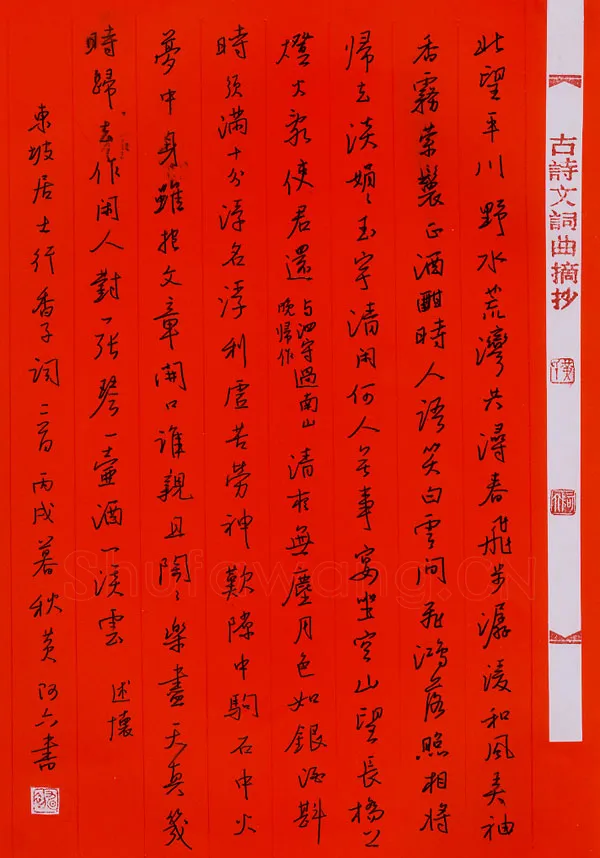 古詩文詞曲摘抄
北望平川野水荒灣共潯春飛步潺湲和風弄袖
香霧縈鬟正酒酣時人語笑白雲間飛鴻落照相將
歸去淡娟〻玉宇清閑何人無事宴坐空山望長橋上
燈火亂使君還 與泗守過南山
晚歸作
清夜無塵月色如銀酒斟
時須滿十分浮名浮利虛苦勞神歎隙中駒石中火
夢中身雖抱文章開口誰親且陶〻樂盡天真幾
時歸去作閑人對一張琴一壺酒一溪雲 述懷
東坡居士行香子詞二首丙戌暮秋黄阿六書
Shufawang.CN